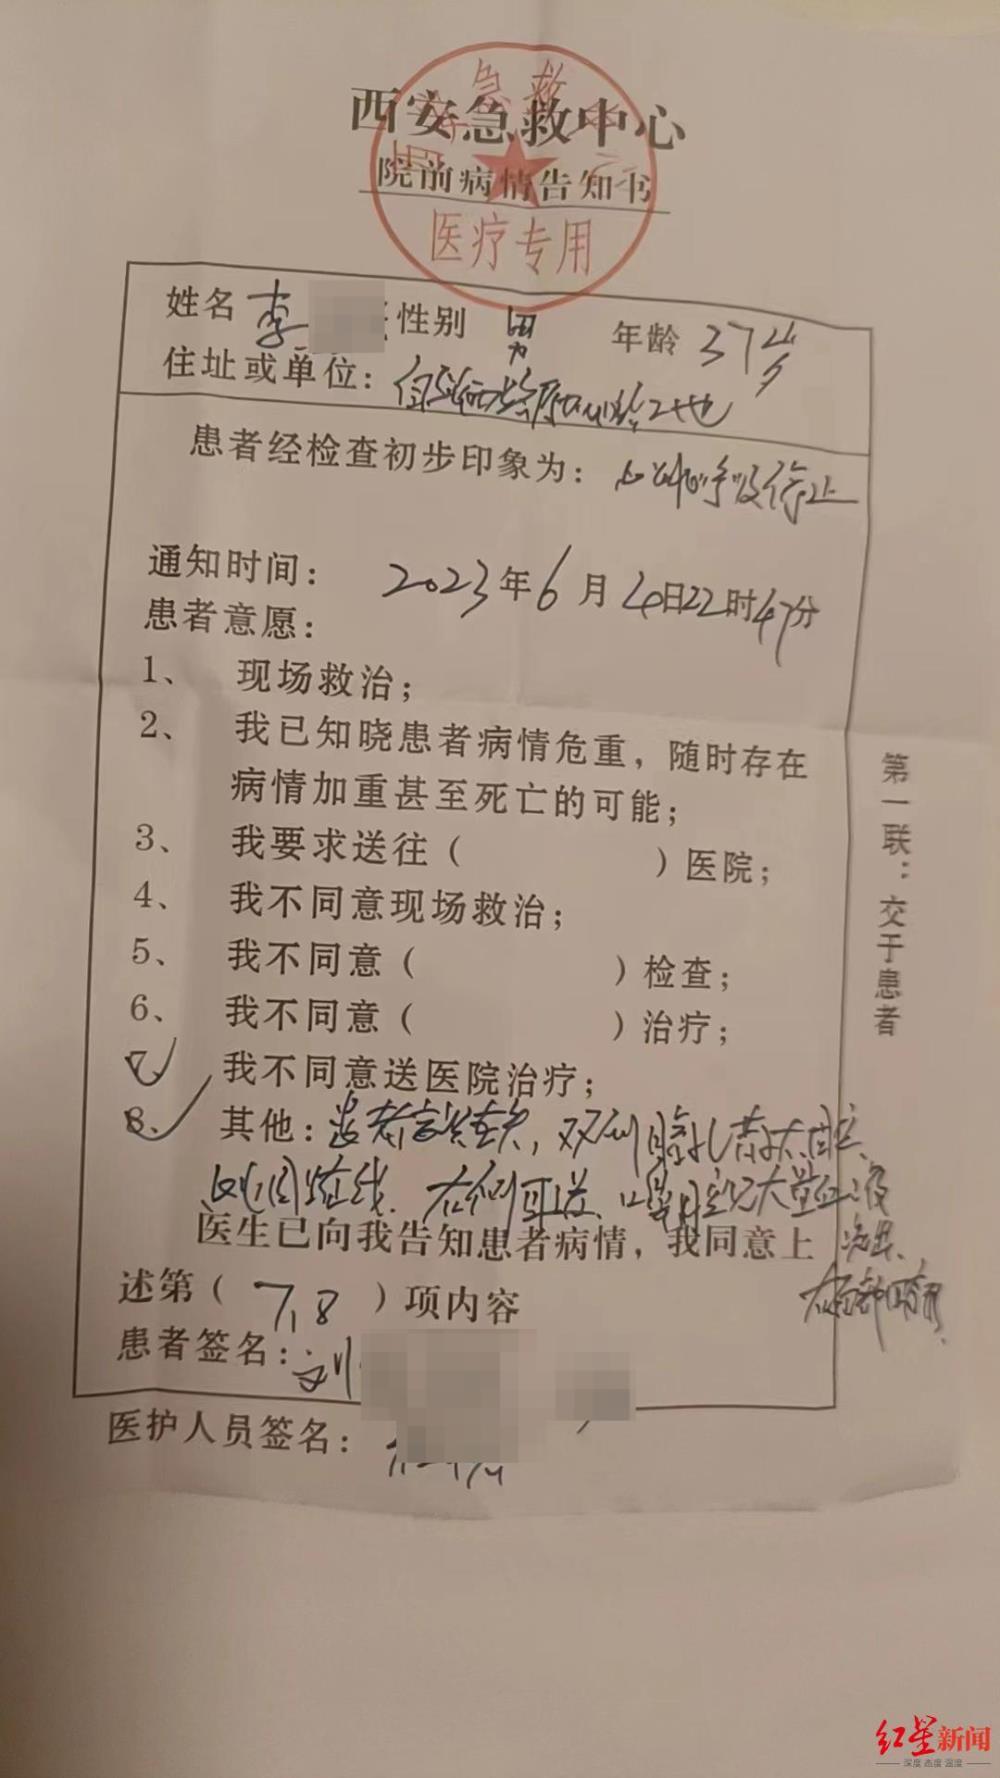 西安急救中心
急救
院前病情告知书
医疗专用
姓名 李 性别 男 年龄 37岁
住址或单位： 工地
患者经检查初步印象为：心跳呼吸停止
通知时间： 2023年6月4日22时47分
患者意愿：
1、 现场救治；
2、 我已知晓患者病情危重，随时存在
病情加重甚至死亡的可能；
3、 我要求送往（ ）医院；
4、 我不同意现场救治；
5、 我不同意（ ）检查；
6、 我不同意（ ）治疗；
7、 我不同意送医院治疗；
8、 其他：患者意识丧失，双侧瞳孔散大固定
右侧耳道、口鼻腔见大量血液
医生已向我告知患者病情，我同意上 流出、
述第（ 7，8 ）项内容
患者签名：刘
医护人员签名：
第一联：交于患者
红星新闻
深度 态度 温度